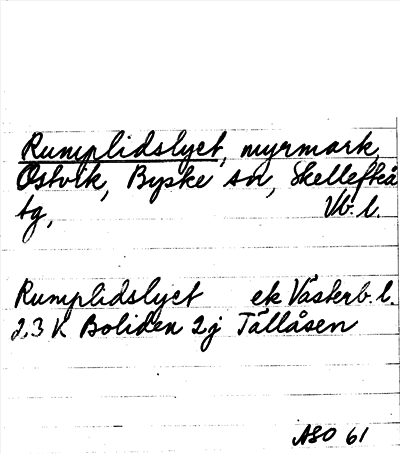 Rumplidslyet, myrmark,
Ostvik, Byske sn, Skellefteå
tg, Vb. l.
Rumplidslyet ek Västerb. l.
23 K Boliden 2j Tällåsen
ASO 61